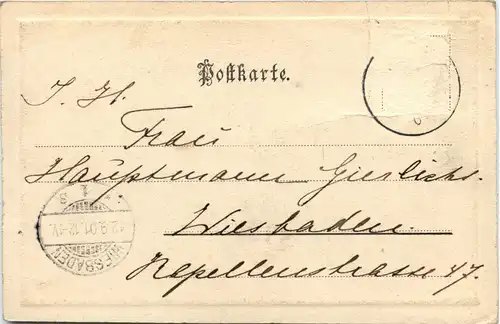 Postkarte.
I. H.
Frau
Hauptmann Gierlichs.
Wiesbaden.
Kapellenstrasse 47.
WIESBADEN
12.9.01. 12-1V.